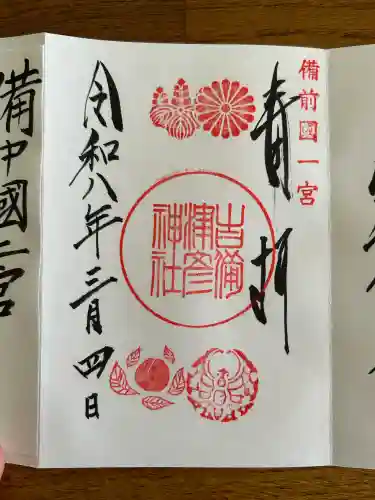 備前國一宮
奉拝
吉備
津彦
神社
令和八年三月四日
備中國一宮